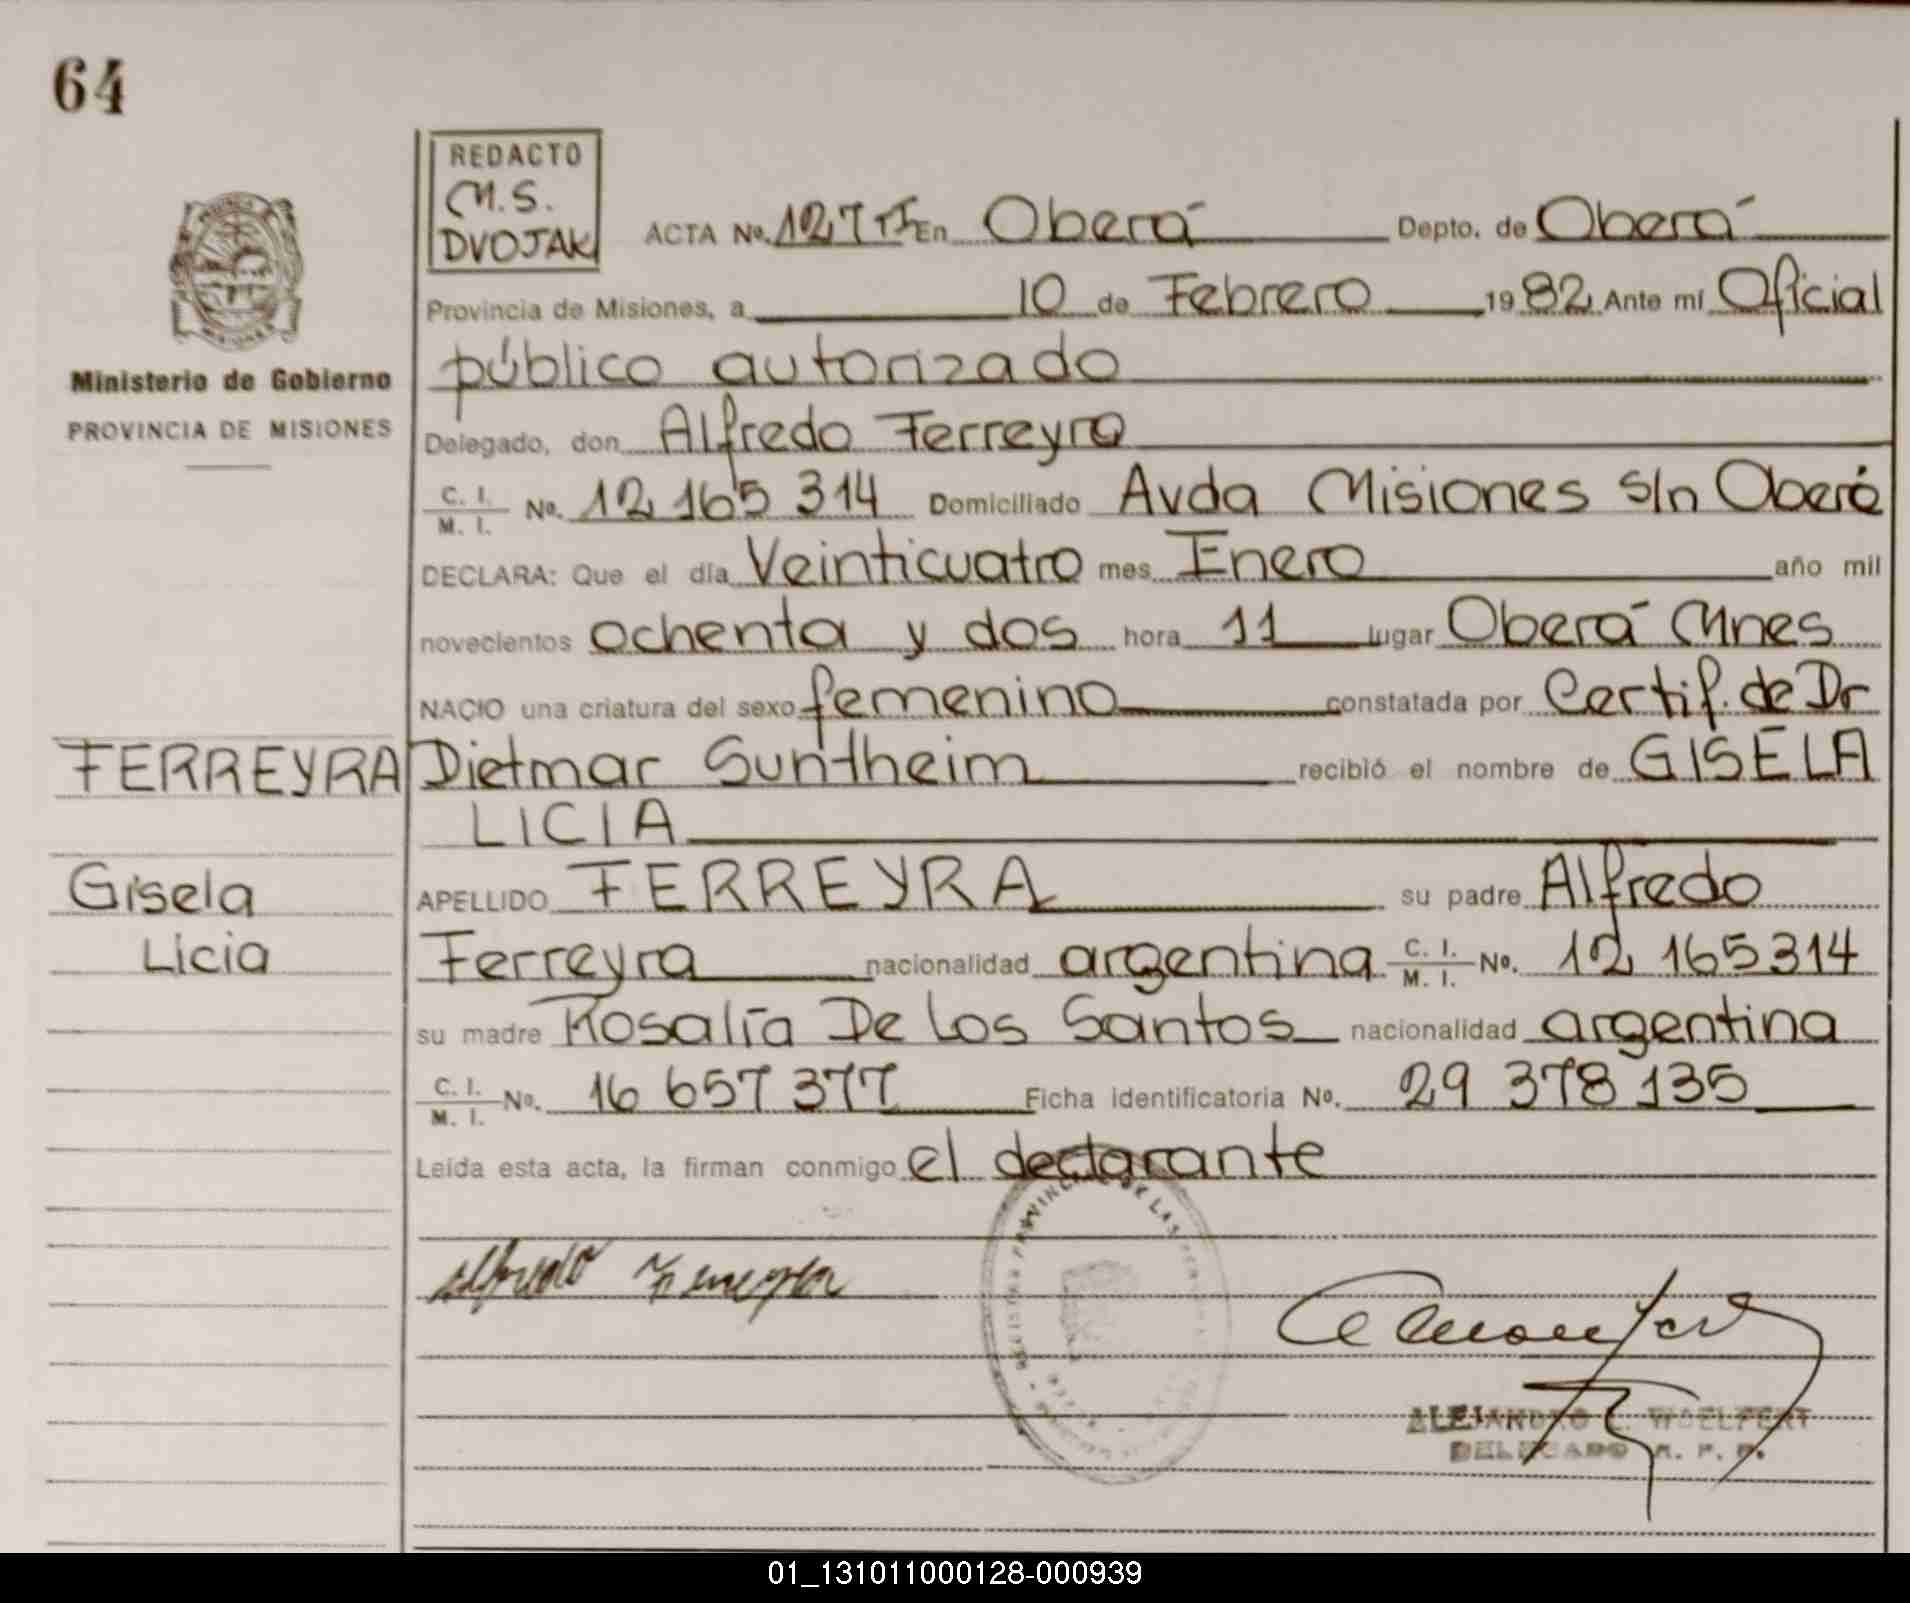 64
REDACTO
M.S.
DVOJAK
ACTA Nº. 127 En Oberá Depto. de Oberá
Provincia de Misiones, a 10 de Febrero 1982 Ante mí Oficial
público autorizado
Ministerio de Gobierno
PROVINCIA DE MISIONES
Delegado, don Alfredo Ferreyra
C. I. / M. I. Nº. 12 165 314 Domiciliado Avda Misiones s/n Oberá
DECLARA: Que el día Veinticuatro mes Enero año mil
novecientos ochenta y dos hora 11 lugar Oberá Mnes
NACIO una criatura del sexo femenino constatada por Certif. de Dr
Dietmar Suntheim recibió el nombre de GISELA
LICIA
FERREYRA
Gisela
Licia
APELLIDO FERREYRA su padre Alfredo
Ferreyra nacionalidad argentina C. I. / M. I. Nº. 12 165314
su madre Rosalía De los Santos nacionalidad argentina
C. I. / M. I. Nº. 16 657 377 Ficha identificatoria Nº. 29 378 135
Leída esta acta, la firman conmigo el declarante
Alfredo Ferreyra
ALEJANDRO WOELFERT
DELEGADO R. P. P.
01_131011000128-000939